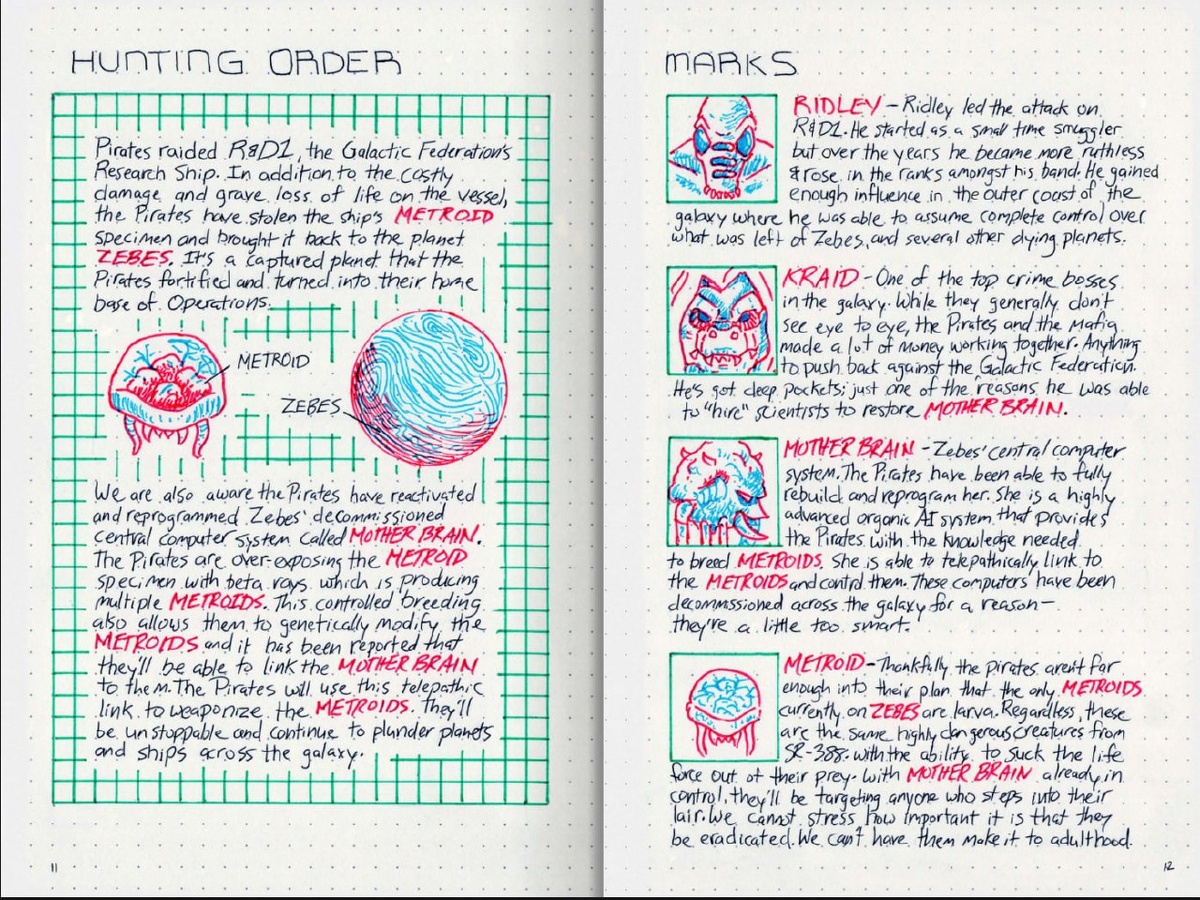 HUNTING ORDER
Pirates raided R&D1, the Galactic Federation's
Research Ship. In addition to the costly
damage and grave loss of life on the vessel,
the Pirates have stolen the ship's METROID
specimen and brought it back to the planet
ZEBES. It's a captured planet that the
Pirates fortified and turned into their home
base of Operations.
METROID
ZEBES
We are also aware the Pirates have reactivated
and reprogrammed Zebes' decommissioned
central computer system called MOTHER BRAIN.
The Pirates are over-exposing the METROID
specimen with beta rays which is producing
multiple METROIDS. This controlled breeding
also allows them to genetically modify the
METROIDS and it has been reported that
they'll be able to link the MOTHER BRAIN
to them. The Pirates will use this telepathic
link to weaponize the METROIDS. They'll
be unstoppable and continue to plunder planets
and ships across the galaxy.
11
MARKS
RIDLEY - Ridley led the attack on
R&D1. He started as a small time smuggler
but over the years he became more ruthless
& rose in the ranks amongst his band. He gained
enough influence in the outer coast of the
galaxy where he was able to assume complete control over
what was left of Zebes, and several other dying planets.
KRAID - One of the top crime bosses
in the galaxy. While they generally don't
see eye to eye, the Pirates and the Mafia
made a lot of money working together. Anything
to push back against the Galactic Federation.
He's got deep pockets; just one of the reasons he was able
to "hire" scientists to restore MOTHER BRAIN.
MOTHER BRAIN - Zebes' central computer
system. The Pirates have been able to fully
rebuild and reprogram her. She is a highly
advanced organic AI system that provides
the Pirates with the knowledge needed
to breed METROIDS. She is able to telepathically link to
the METROIDS and control them. These computers have been
decommissioned across the galaxy for a reason—
they're a little too smart.
METROID - Thankfully the Pirates aren't far
enough into their plan that the only METROIDS
currently on ZEBES are larva. Regardless, these
are the same highly dangerous creatures from
SR-388 with the ability to suck the life
force out of their prey. With MOTHER BRAIN already in
control, they'll be targeting anyone who steps into their
lair. We cannot stress how important it is that they
be eradicated. We can't have them make it to adulthood.
12